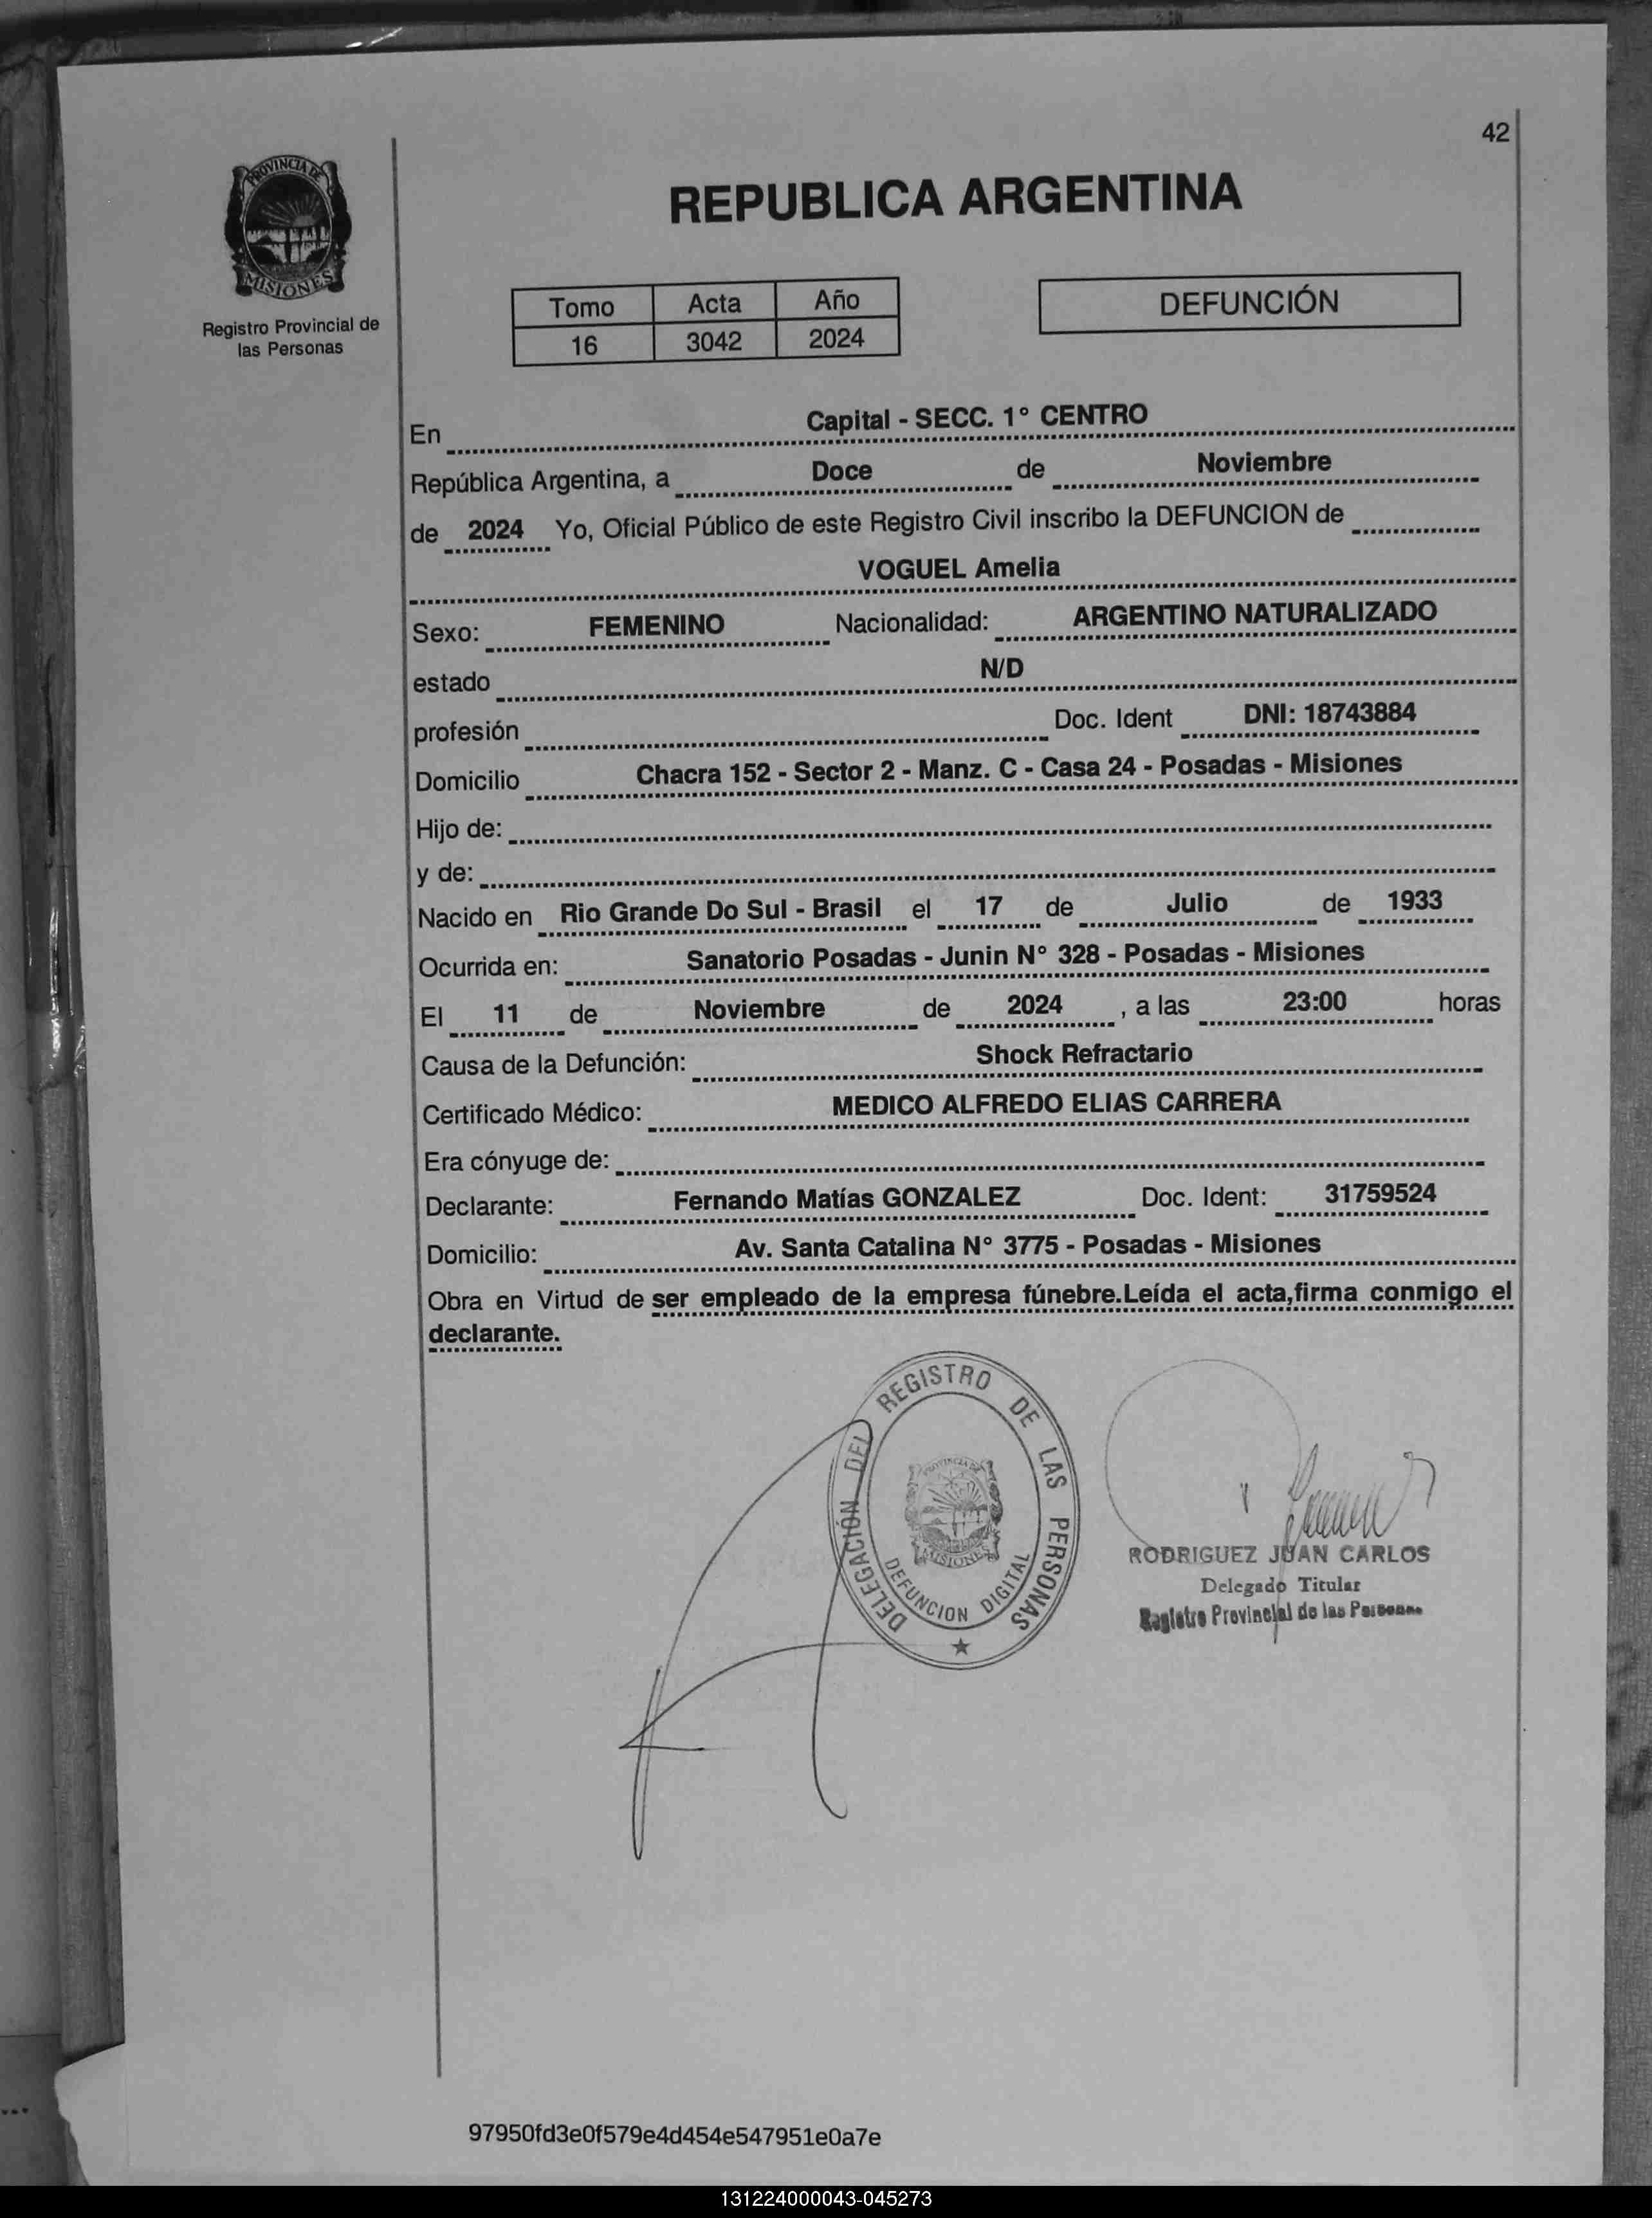 42
PROVINCIA DE
MISIONES
Registro Provincial de
las Personas
REPUBLICA ARGENTINA
Tomo Acta Año
16 3042 2024
DEFUNCIÓN
En Capital - SECC. 1° CENTRO
República Argentina, a Doce de Noviembre
de 2024 Yo, Oficial Público de este Registro Civil inscribo la DEFUNCION de
VOGUEL Amelia
Sexo: FEMENINO Nacionalidad: ARGENTINO NATURALIZADO
estado N/D
profesión Doc. Ident DNI: 18743884
Domicilio Chacra 152 - Sector 2 - Manz. C - Casa 24 - Posadas - Misiones
Hijo de:
y de:
Nacido en Rio Grande Do Sul - Brasil el 17 de Julio de 1933
Ocurrida en: Sanatorio Posadas - Junin N° 328 - Posadas - Misiones
El 11 de Noviembre de 2024 , a las 23:00 horas
Causa de la Defunción: Shock Refractario
Certificado Médico: MEDICO ALFREDO ELIAS CARRERA
Era cónyuge de:
Declarante: Fernando Matías GONZALEZ Doc. Ident: 31759524
Domicilio: Av. Santa Catalina N° 3775 - Posadas - Misiones
Obra en Virtud de ser empleado de la empresa fúnebre.Leída el acta,firma conmigo el
declarante.
DELEGACIÓN DEL REGISTRO DE LAS PERSONAS
PROVINCIA DE
MISIONES
DEFUNCION DIGITAL
RODRIGUEZ JUAN CARLOS
Delegado Titular
Registro Provincial de las Personas
97950fd3e0f579e4d454e547951e0a7e
131224000043-045273